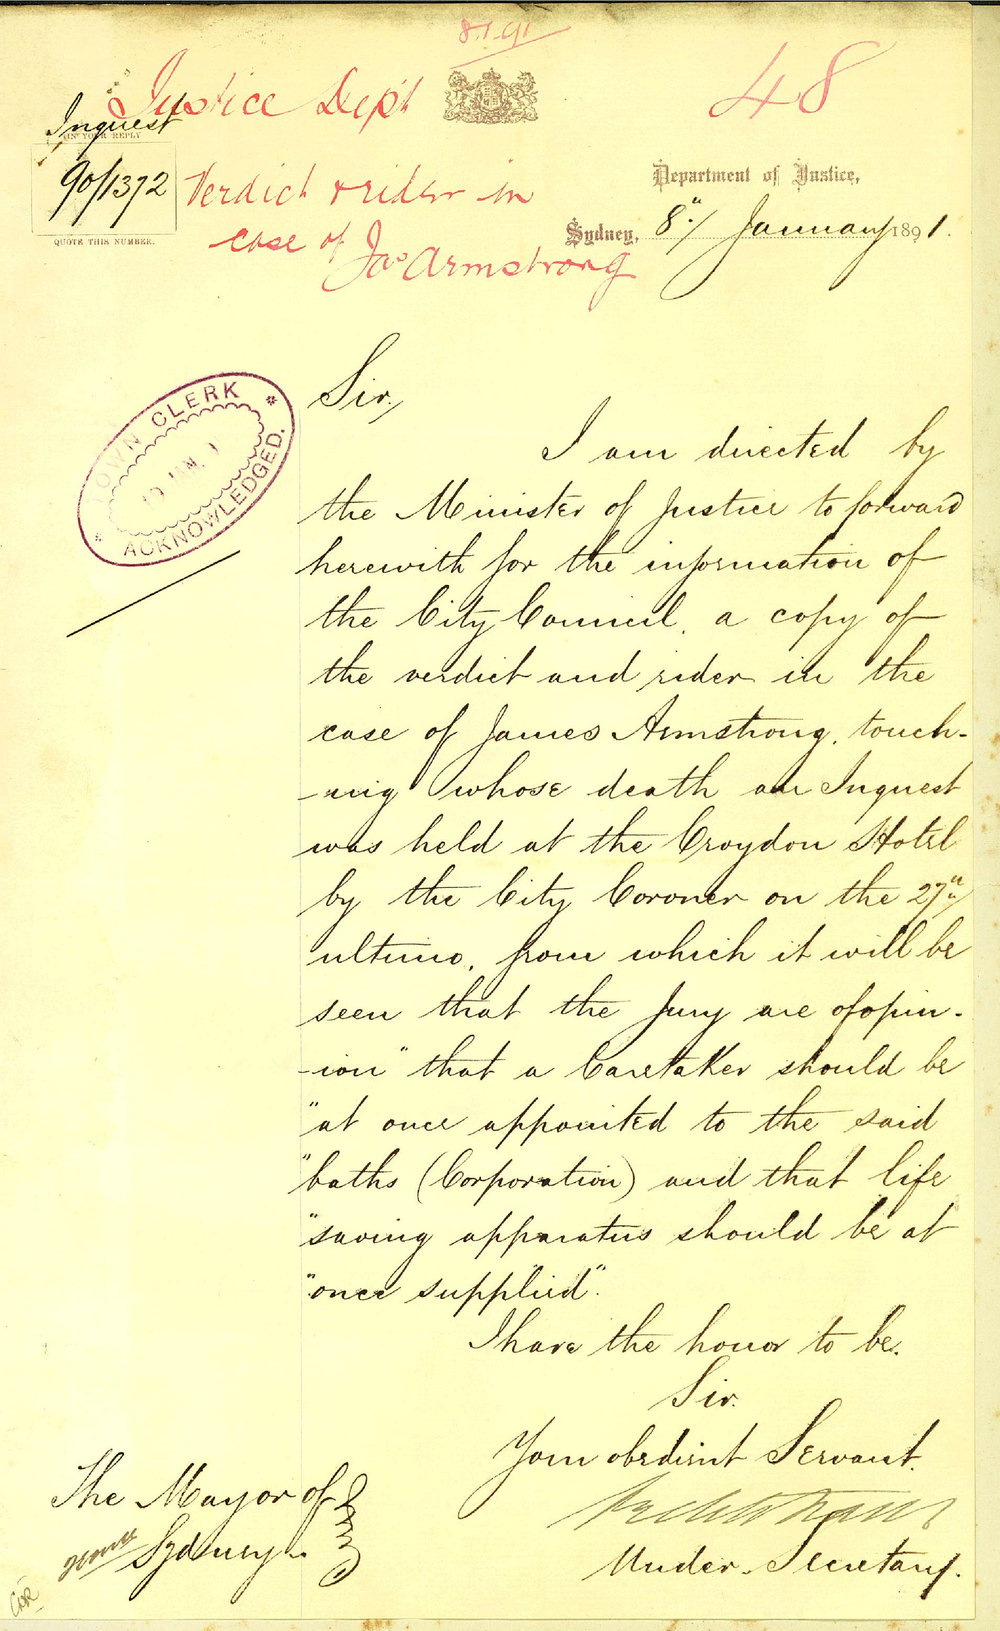 8.1.91
Justice Dep't
48
Inquest
IN YOUR REPLY
90/1372
QUOTE THIS NUMBER.
Verdict & rider in
case of
Jas Armstrong
Department of Justice,
Sydney, 8th January 1891.
TOWN CLERK
JAN.
ACKNOWLEDGED.
Sir,
I am directed by
the Minister of Justice to forward
herewith for the information of
the City Council, a copy of
the verdict and rider in the
case of James Armstrong, touch-
-ing whose death an Inquest
was held at the Croydon Hotel
by the City Coroner on the 27th
ultimo, from which it will be
seen that the Jury are of opin-
-ion "that a Caretaker should be
"at once appointed to the said
"baths (Corporation) and that life
"saving apparatus should be at
"once supplied".
I have the honor to be,
Sir,
Your obedient Servant.
Under-Secretary.
The Mayor of
Sydney.